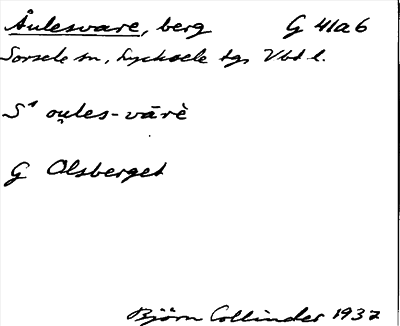 Åulesvare, berg G 41a6
Sorsele sn, Lycksele tgs Vbd l.
S¹ ou̯les-vārè
G Olsberget
Björn Collinder 1937